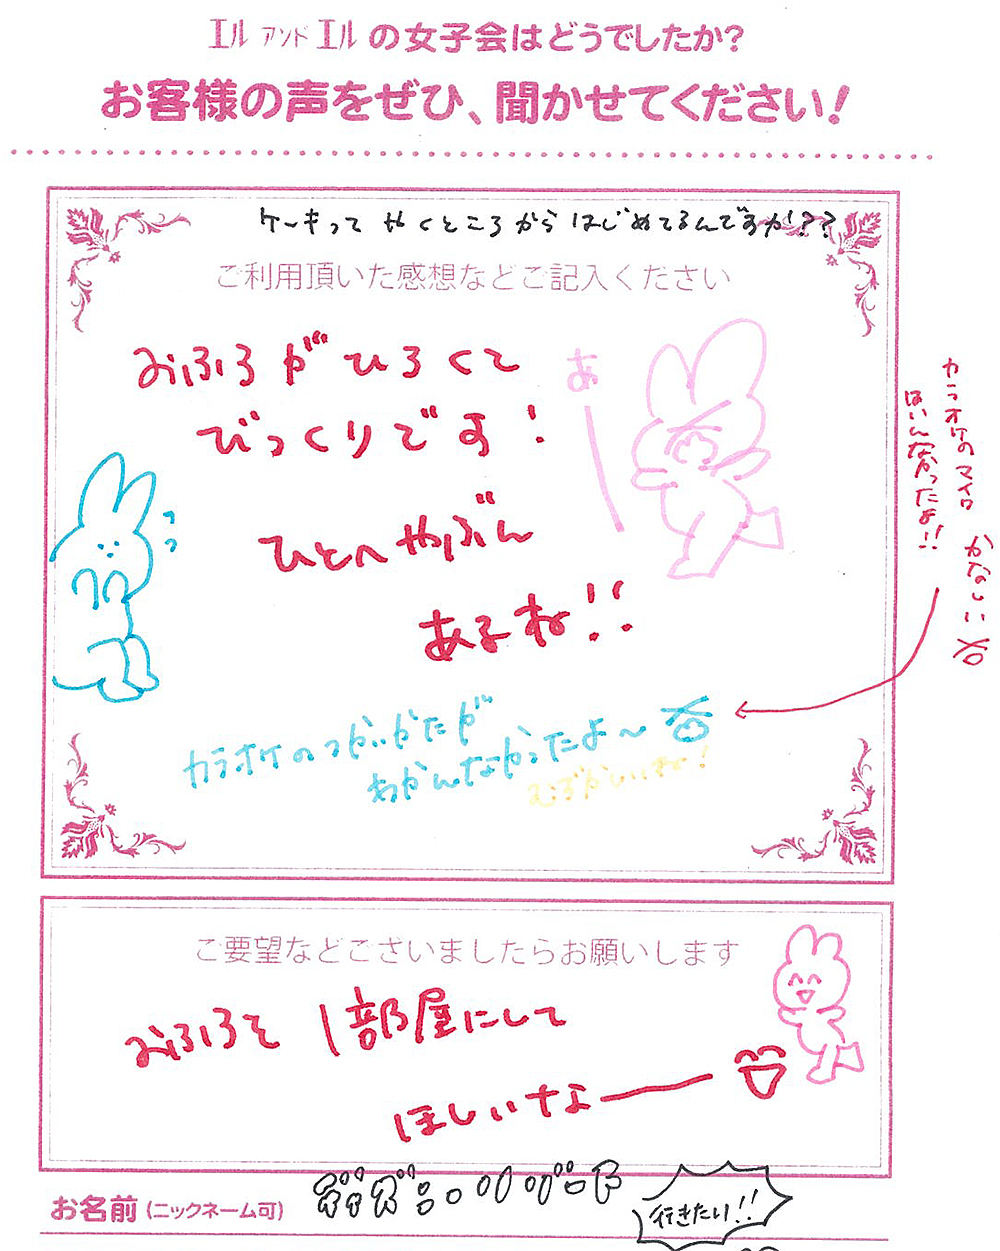 エル アンド エルの女子会はどうでしたか?
お客様の声をぜひ、聞かせてください!
ケーキって やくところから はじめてるんですか??
ご利用頂いた感想などご記入ください
おふろがひろくて
びっくりです!
ひとへやぶん
あるね!!
あ
カラオケのマイク かなしい
はいんなかったよ!!
カラオケのつかいかたが
わかんなかったよ〜
むずかしいね!
ご要望などございましたらお願いします
おふろを 1部屋にして
ほしいなー
お名前 (ニックネーム可)
行きたい!!